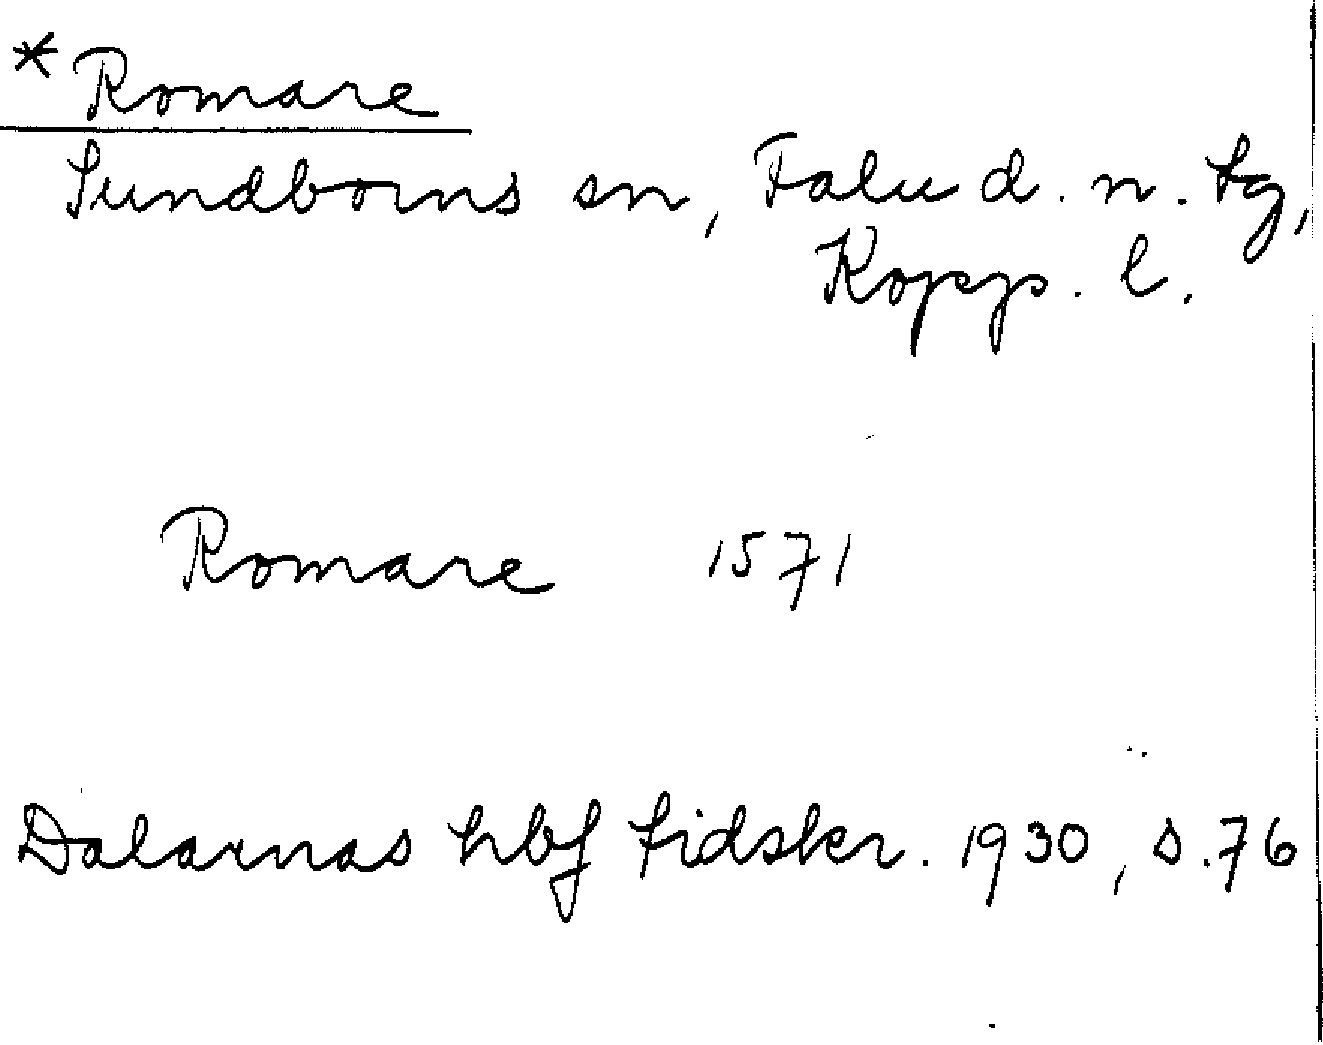 * Romare
Sundborns sn, Falu d. n. tg,
Kopp. l.
Romare 1571
Dalarnas hbf tidskr. 1930, s. 76